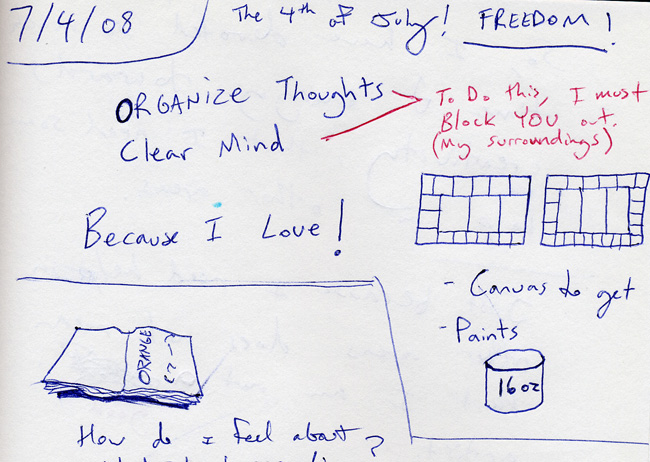 7/4/08
The 4th of July! FREEDOM!
ORGANIZE Thoughts
Clear Mind
To Do this, I must
Block YOU out.
(My surroundings)
Because I Love!
- Canvas to get
- Paints
16oz
ORANGE
How do I feel about ?